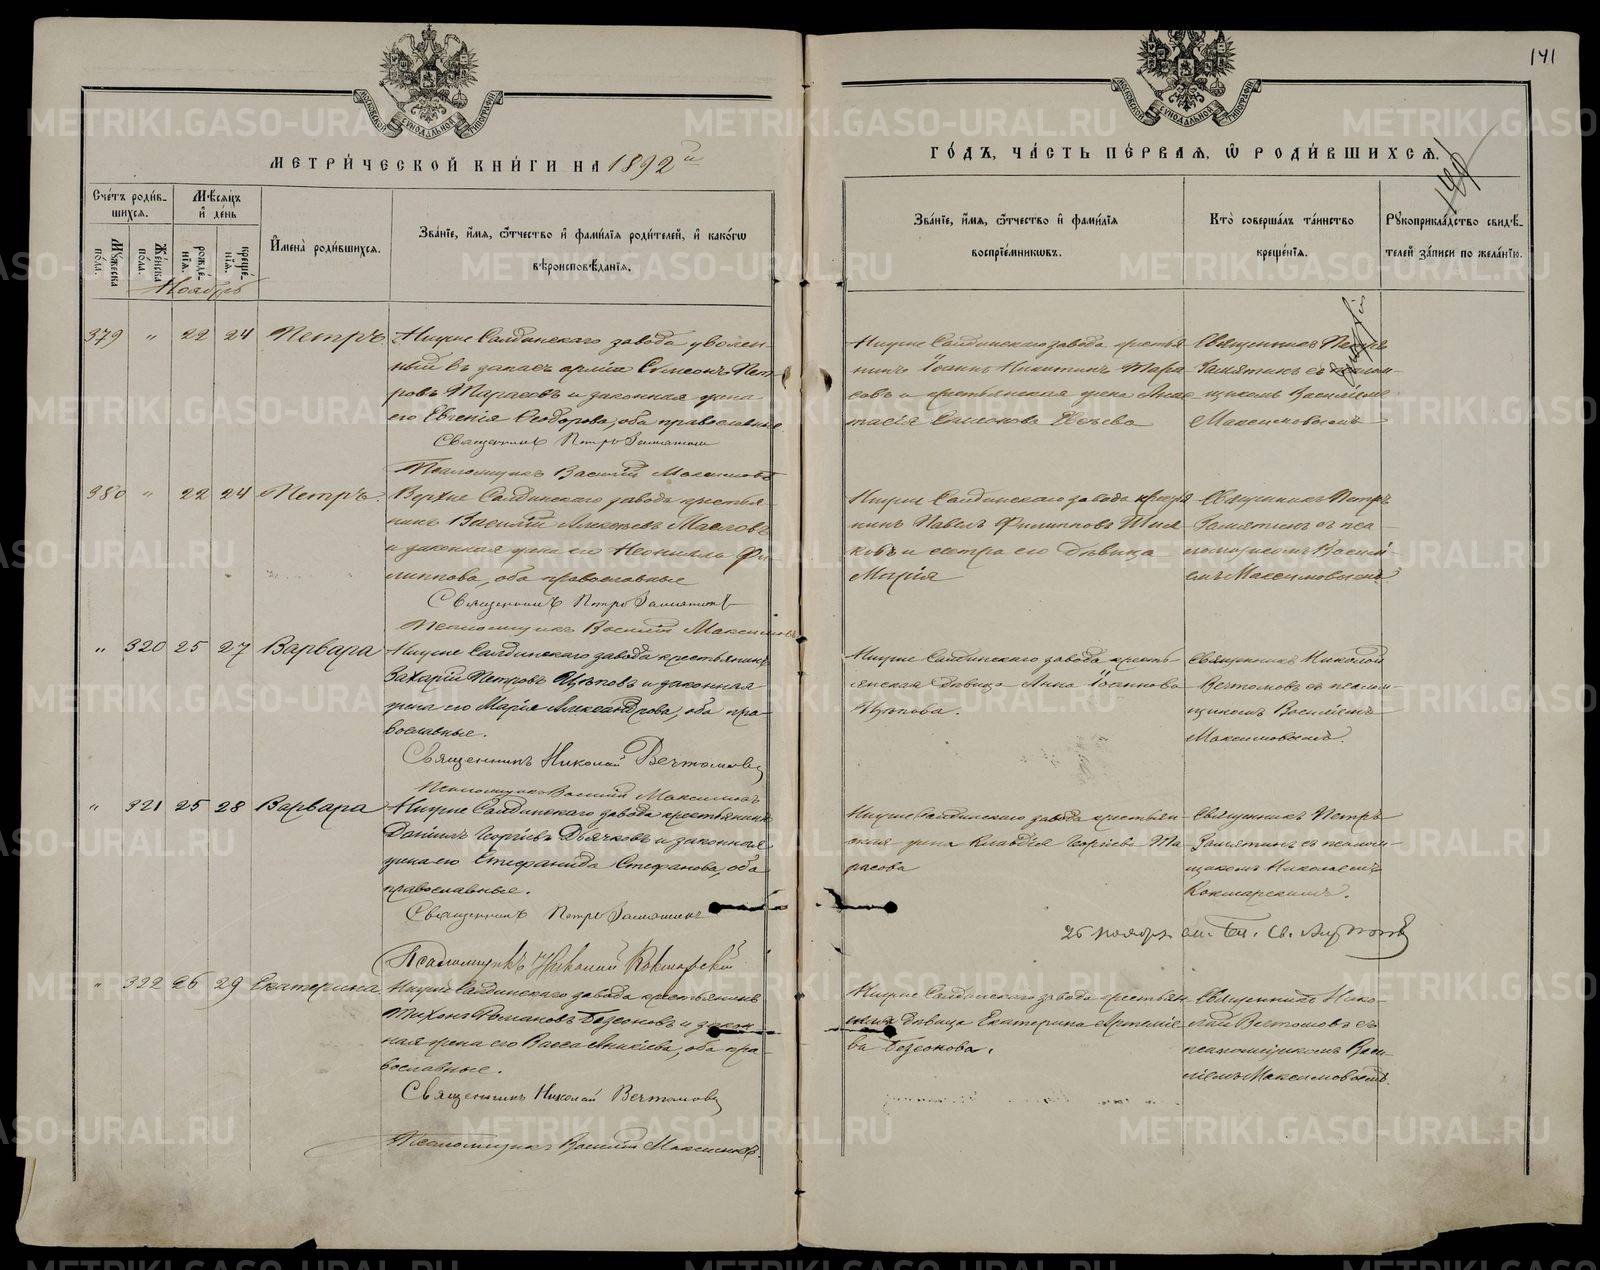 141
МЕТРИ́ЧЕСКОЙ КНИ́ГИ НА 1892 й
ГО́ДЪ, ЧА́СТЬ ПЕ́РВАЯ, Ѽ РОДИ́ВШИХСѦ.
МОСКОВСКОЙ СѴНОДАЛЬНОЙ ТИПОГРАФІИ
МОСКОВСКОЙ СѴНОДАЛЬНОЙ ТИПОГРАФІИ
Сче́тъ роди́в-
шихся.
Му́жеска по́ла.
Же́нска по́ла.
Мѣ́сяцъ
и҆ день
рожде́-
нїѧ.
креще́-
нїѧ.
И҆мена̀ роди́вшихся.
Зва́нїе, и҆́мя, ѻ҆́тчество и҆ фами́лїя роди́телей, и҆ како́гѡ
вѣроисповѣ́данїя.
Зва́нїе, и҆́мя, ѻ҆́тчество и҆ фами́лїя
воспрїе́мниковъ.
Кто̀ соверша́лъ та́инство
креще́нїя.
Рꙋкоприкла́дство свидѣ́-
телей за́писи по жела́нїю.
Ноябрь
379 " 22 24 Петръ
Нижне Салдинскаго завода уволен-
ный въ запасъ арміи Симеонъ Пет-
ровъ и законная жена
его Евгенія Ѳеодорова, оба православные
Священникъ Петръ Замятинъ
Псаломщикъ Василій Максимовъ
Нижне Салдинскаго завода крестья-
нинъ Іоаннъ Никитинъ Тара-
совъ и крестьянская жена Анас-
тасія Симеонова
Священникъ Петръ
Замятинъ съ псалом-
щикомъ Василіемъ
Максимовымъ
380 " 22 24 Петръ.
Верхне Салдинскаго завода крестья-
нинъ Василій Алексѣевъ Масловъ
и законная жена его Неонилла Фи-
липпова, оба православные
Священникъ Петръ Замятинъ
Псаломщикъ Василій Максимовъ
Нижне Салдинскаго завода крестья
нинъ Павелъ Филипповъ
и сестра его дѣвица
Марія
Священникъ Петръ
Замятинъ съ пса-
ломщикомъ Василі-
емъ Максимовымъ
" 320 25 27 Варвара
Нижне Салдинскаго завода крестьянинъ
Захарій Петровъ Цѣповъ и законная
жена его Марія Александрова, оба пра-
вославные.
Священникъ Николай Вечтомовъ
Псаломщикъ Василій Максимовъ
Нижне Салдинскаго завода кресть-
янская дѣвица Анна Іоаннова
Цѣпова.
Священникъ Николай
Вечтомовъ съ псалом-
щикомъ Василіемъ
Максимовымъ.
" 321 25 28 Варвара
Нижне Салдинскаго завода крестьянинъ
Даніилъ Георгіевъ Дьячковъ и законная
жена его Стефанида Стефанова, оба
православные.
Священникъ Петръ Замятинъ
Псаломщикъ Николай Кокшарскій
Нижне Салдинскаго завода крестьян-
ская жена Клавдія Георгіева Та-
расова
Священникъ Петръ
Замятинъ съ псалом-
щикомъ Николаемъ
Кокшарскимъ.
26 ноября Св.
" 322 26 29 Екатерина
Нижне Салдинскаго завода крестьянинъ
Тихонъ Романовъ Безсоновъ и закон-
ная жена его Васса Аникіева, оба пра-
вославные.
Священникъ Николай Вечтомовъ
Псаломщикъ Василій Максимовъ.
Нижне Салдинскаго завода крестьян-
ская дѣвица Екатерина Артеміе-
ва Безсонова.
Священникъ Нико-
лай Вечтомовъ съ
псаломщикомъ Васи-
ліемъ Максимовымъ.
METRIKI.GASO-URAL.RU